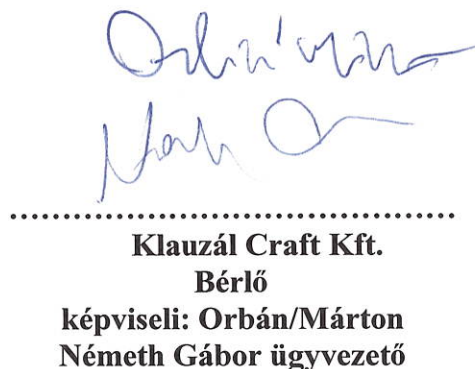 ..................................................
Klauzál Craft Kft.
Bérlő
képviseli: Orbán/Márton
Németh Gábor ügyvezető